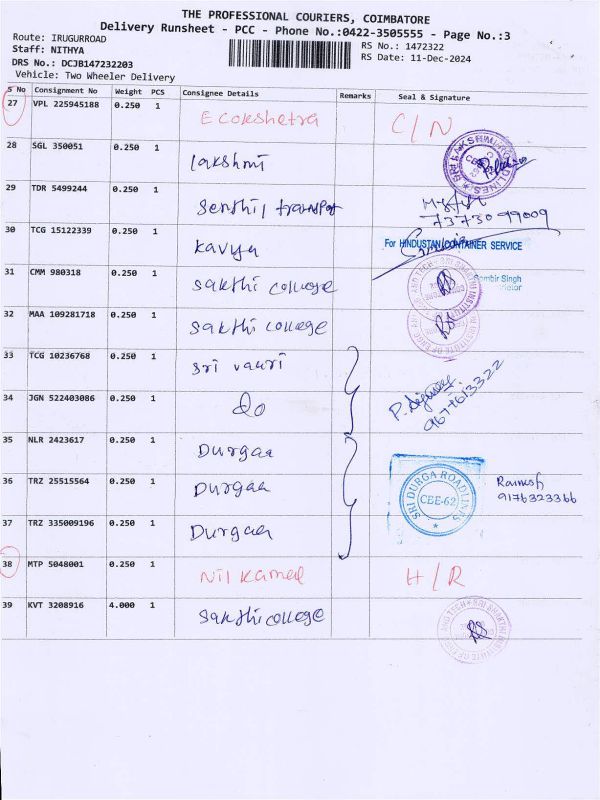 THE PROFESSIONAL COURIERS, COIMBATORE
Delivery Runsheet - PCC - Phone No.:0422-3505555 - Page No.:3
Route: IRUGURROAD
RS No.: 1472322
Staff: NITHYA
RS Date: 11-Dec-2024
DRS No.: DCJB147232203
Vehicle: Two Wheeler Delivery
S No Consignment No Weight PCS Consignee Details Remarks Seal & Signature
27 VPL 225945188 0.250 1 Ecokshetra C/N
28 SGL 350051 0.250 1 lakshmi
29 TDR 5499244 0.250 1 Senthil transport
7373099009
30 TCG 15122339 0.250 1 kavya For HINDUSTAN CONTAINER SERVICE
31 CMM 980318 0.250 1 sakthi college
32 MAA 109281718 0.250 1 sakthi college
33 TCG 10236768 0.250 1 sri vauri
34 JGN 522403086 0.250 1 do
9677613322
35 NLR 2423617 0.250 1 Durgaa
36 TRZ 25515564 0.250 1 Durgaa SRI DURGA ROADLINES CBE-62 Ramesh
9176323366
37 TRZ 335009196 0.250 1 Durgaa
38 MTP 5048001 0.250 1 Nil kamal H/R
39 KVT 3208916 4.000 1 sakthi college